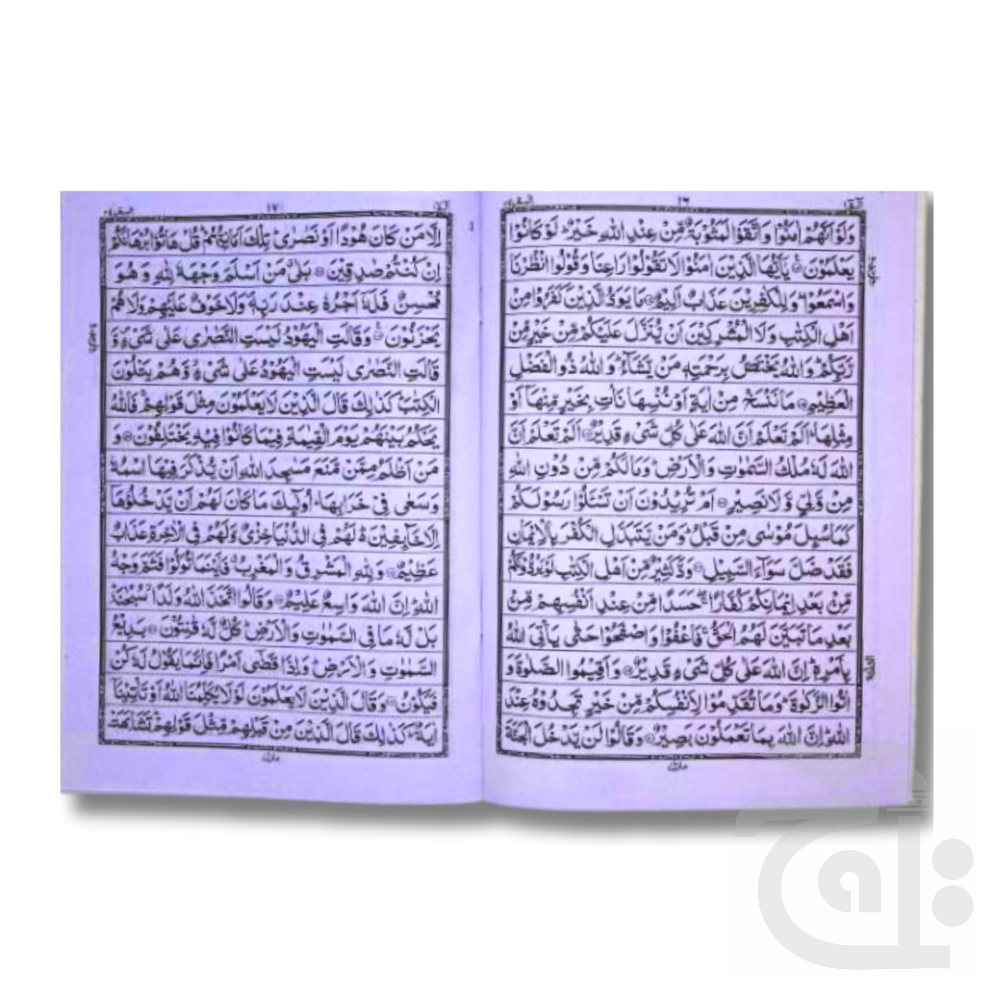 ١٦
وَلَوْ اَنَّهُمْ اٰمَنُوْا وَاتَّقَوْا لَمَثُوْبَةٌ مِّنْ عِنْدِ اللّٰهِ خَيْرٌ ؕ لَوْ كَانُوْا
يَعْلَمُوْنَ يٰۤاَيُّهَا الَّذِيْنَ اٰمَنُوْا لَا تَقُوْلُوْا رَاعِنَا وَقُوْلُوا انْظُرْنَا
وَاسْمَعُوْا ؕ وَلِلْكٰفِرِيْنَ عَذَابٌ اَلِيْمٌ مَا يَوَدُّ الَّذِيْنَ كَفَرُوْا مِنْ
اَهْلِ الْكِتٰبِ وَلَا الْمُشْرِكِيْنَ اَنْ يُّنَزَّلَ عَلَيْكُمْ مِّنْ خَيْرٍ مِّنْ
رَّبِّكُمْ ؕ وَاللّٰهُ يَخْتَصُّ بِرَحْمَتِهٖ مَنْ يَّشَآءُ ؕ وَاللّٰهُ ذُو الْفَضْلِ
الْعَظِيْمِ مَا نَنْسَخْ مِنْ اٰيَةٍ اَوْ نُنْسِهَا نَاْتِ بِخَيْرٍ مِّنْهَاۤ اَوْ
مِثْلِهَا ؕ اَلَمْ تَعْلَمْ اَنَّ اللّٰهَ عَلٰى كُلِّ شَیْءٍ قَدِيْرٌ اَلَمْ تَعْلَمْ اَنَّ
اللّٰهَ لَهٗ مُلْكُ السَّمٰوٰتِ وَالْاَرْضِ ؕ وَمَا لَكُمْ مِّنْ دُوْنِ اللّٰهِ
مِنْ وَّلِیٍّ وَّلَا نَصِيْرٍ اَمْ تُرِيْدُوْنَ اَنْ تَسْـَٔلُوْا رَسُوْلَكُمْ
كَمَا سُىِٕلَ مُوْسٰى مِنْ قَبْلُ ؕ وَمَنْ يَّتَبَدَّلِ الْكُفْرَ بِالْاِيْمَانِ
فَقَدْ ضَلَّ سَوَآءَ السَّبِيْلِ وَدَّ كَثِيْرٌ مِّنْ اَهْلِ الْكِتٰبِ لَوْ يَرُدُّوْنَكُمْ
مِّنْ بَعْدِ اِيْمَانِكُمْ كُفَّارًا ۚ حَسَدًا مِّنْ عِنْدِ اَنْفُسِهِمْ مِّنْ
بَعْدِ مَا تَبَيَّنَ لَهُمُ الْحَقُّ ۚ فَاعْفُوْا وَاصْفَحُوْا حَتّٰى يَاْتِیَ اللّٰهُ
بِاَمْرِهٖ ؕ اِنَّ اللّٰهَ عَلٰى كُلِّ شَیْءٍ قَدِيْرٌ وَاَقِيْمُوا الصَّلٰوةَ وَ
اٰتُوا الزَّكٰوةَ ؕ وَمَا تُقَدِّمُوْا لِاَنْفُسِكُمْ مِّنْ خَيْرٍ تَجِدُوْهُ عِنْدَ
اللّٰهِ ؕ اِنَّ اللّٰهَ بِمَا تَعْمَلُوْنَ بَصِيْرٌ وَقَالُوْا لَنْ يَّدْخُلَ الْجَنَّةَ
١٧
اِلَّا مَنْ كَانَ هُوْدًا اَوْ نَصٰرٰى ؕ تِلْكَ اَمَانِيُّهُمْ ؕ قُلْ هَاتُوْا بُرْهَانَكُمْ
اِنْ كُنْتُمْ صٰدِقِيْنَ بَلٰى مَنْ اَسْلَمَ وَجْهَهٗ لِلّٰهِ وَهُوَ
مُحْسِنٌ فَلَهٗۤ اَجْرُهٗ عِنْدَ رَبِّهٖ وَلَا خَوْفٌ عَلَيْهِمْ وَلَا هُمْ
يَحْزَنُوْنَ وَقَالَتِ الْيَهُوْدُ لَيْسَتِ النَّصٰرٰى عَلٰى شَیْءٍ وَّ
قَالَتِ النَّصٰرٰى لَيْسَتِ الْيَهُوْدُ عَلٰى شَیْءٍ وَّهُمْ يَتْلُوْنَ
الْكِتٰبَ ؕ كَذٰلِكَ قَالَ الَّذِيْنَ لَا يَعْلَمُوْنَ مِثْلَ قَوْلِهِمْ ۚ فَاللّٰهُ
يَحْكُمُ بَيْنَهُمْ يَوْمَ الْقِيٰمَةِ فِيْمَا كَانُوْا فِيْهِ يَخْتَلِفُوْنَ وَ
مَنْ اَظْلَمُ مِمَّنْ مَّنَعَ مَسٰجِدَ اللّٰهِ اَنْ يُّذْكَرَ فِيْهَا اسْمُهٗ
وَسَعٰى فِیْ خَرَابِهَا ؕ اُولٰٓىِٕكَ مَا كَانَ لَهُمْ اَنْ يَّدْخُلُوْهَاۤ
اِلَّا خَآىِٕفِيْنَ ؕ لَهُمْ فِی الدُّنْيَا خِزْیٌ وَّلَهُمْ فِی الْاٰخِرَةِ عَذَابٌ
عَظِيْمٌ وَلِلّٰهِ الْمَشْرِقُ وَالْمَغْرِبُ ۗ فَاَيْنَمَا تُوَلُّوْا فَثَمَّ وَجْهُ
اللّٰهِ ؕ اِنَّ اللّٰهَ وَاسِعٌ عَلِيْمٌ وَقَالُوا اتَّخَذَ اللّٰهُ وَلَدًا ۙ سُبْحٰنَهٗ
بَلْ لَّهٗ مَا فِی السَّمٰوٰتِ وَالْاَرْضِ ؕ كُلٌّ لَّهٗ قٰنِتُوْنَ بَدِيْعُ
السَّمٰوٰتِ وَالْاَرْضِ ؕ وَاِذَا قَضٰۤى اَمْرًا فَاِنَّمَا يَقُوْلُ لَهٗ كُنْ
فَيَكُوْنُ وَقَالَ الَّذِيْنَ لَا يَعْلَمُوْنَ لَوْلَا يُكَلِّمُنَا اللّٰهُ اَوْ تَاْتِيْنَاۤ
اٰيَةٌ ؕ كَذٰلِكَ قَالَ الَّذِيْنَ مِنْ قَبْلِهِمْ مِّثْلَ قَوْلِهِمْ ؕ تَشَابَهَتْ